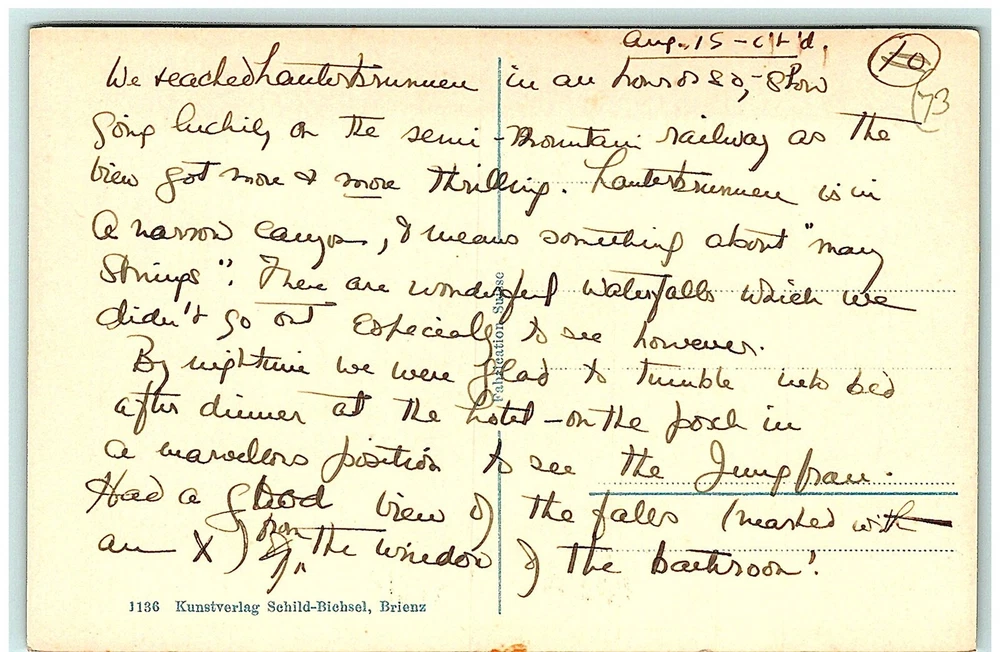 Aug. 15 - c't'd.
70
73
We reached Lauterbrunnen in an hour or so, - slow
going luckily on the semi-mountain railway as the
view got more & more thrilling. Lauterbrunnen is in
a narrow canyon, & means something about "many
Springs". There are wonderful waterfalls which we
didn't go out especially to see however.
By nightime we were glad to tumble into bed
after dinner at the hotel - on the porch in
a marvellous position to see the Jungfrau.
Had a good view of the falls (marked with
an X) from the window of the bathroom!
Fabrication Suisse
1136 Kunstverlag Schild-Bichsel, Brienz